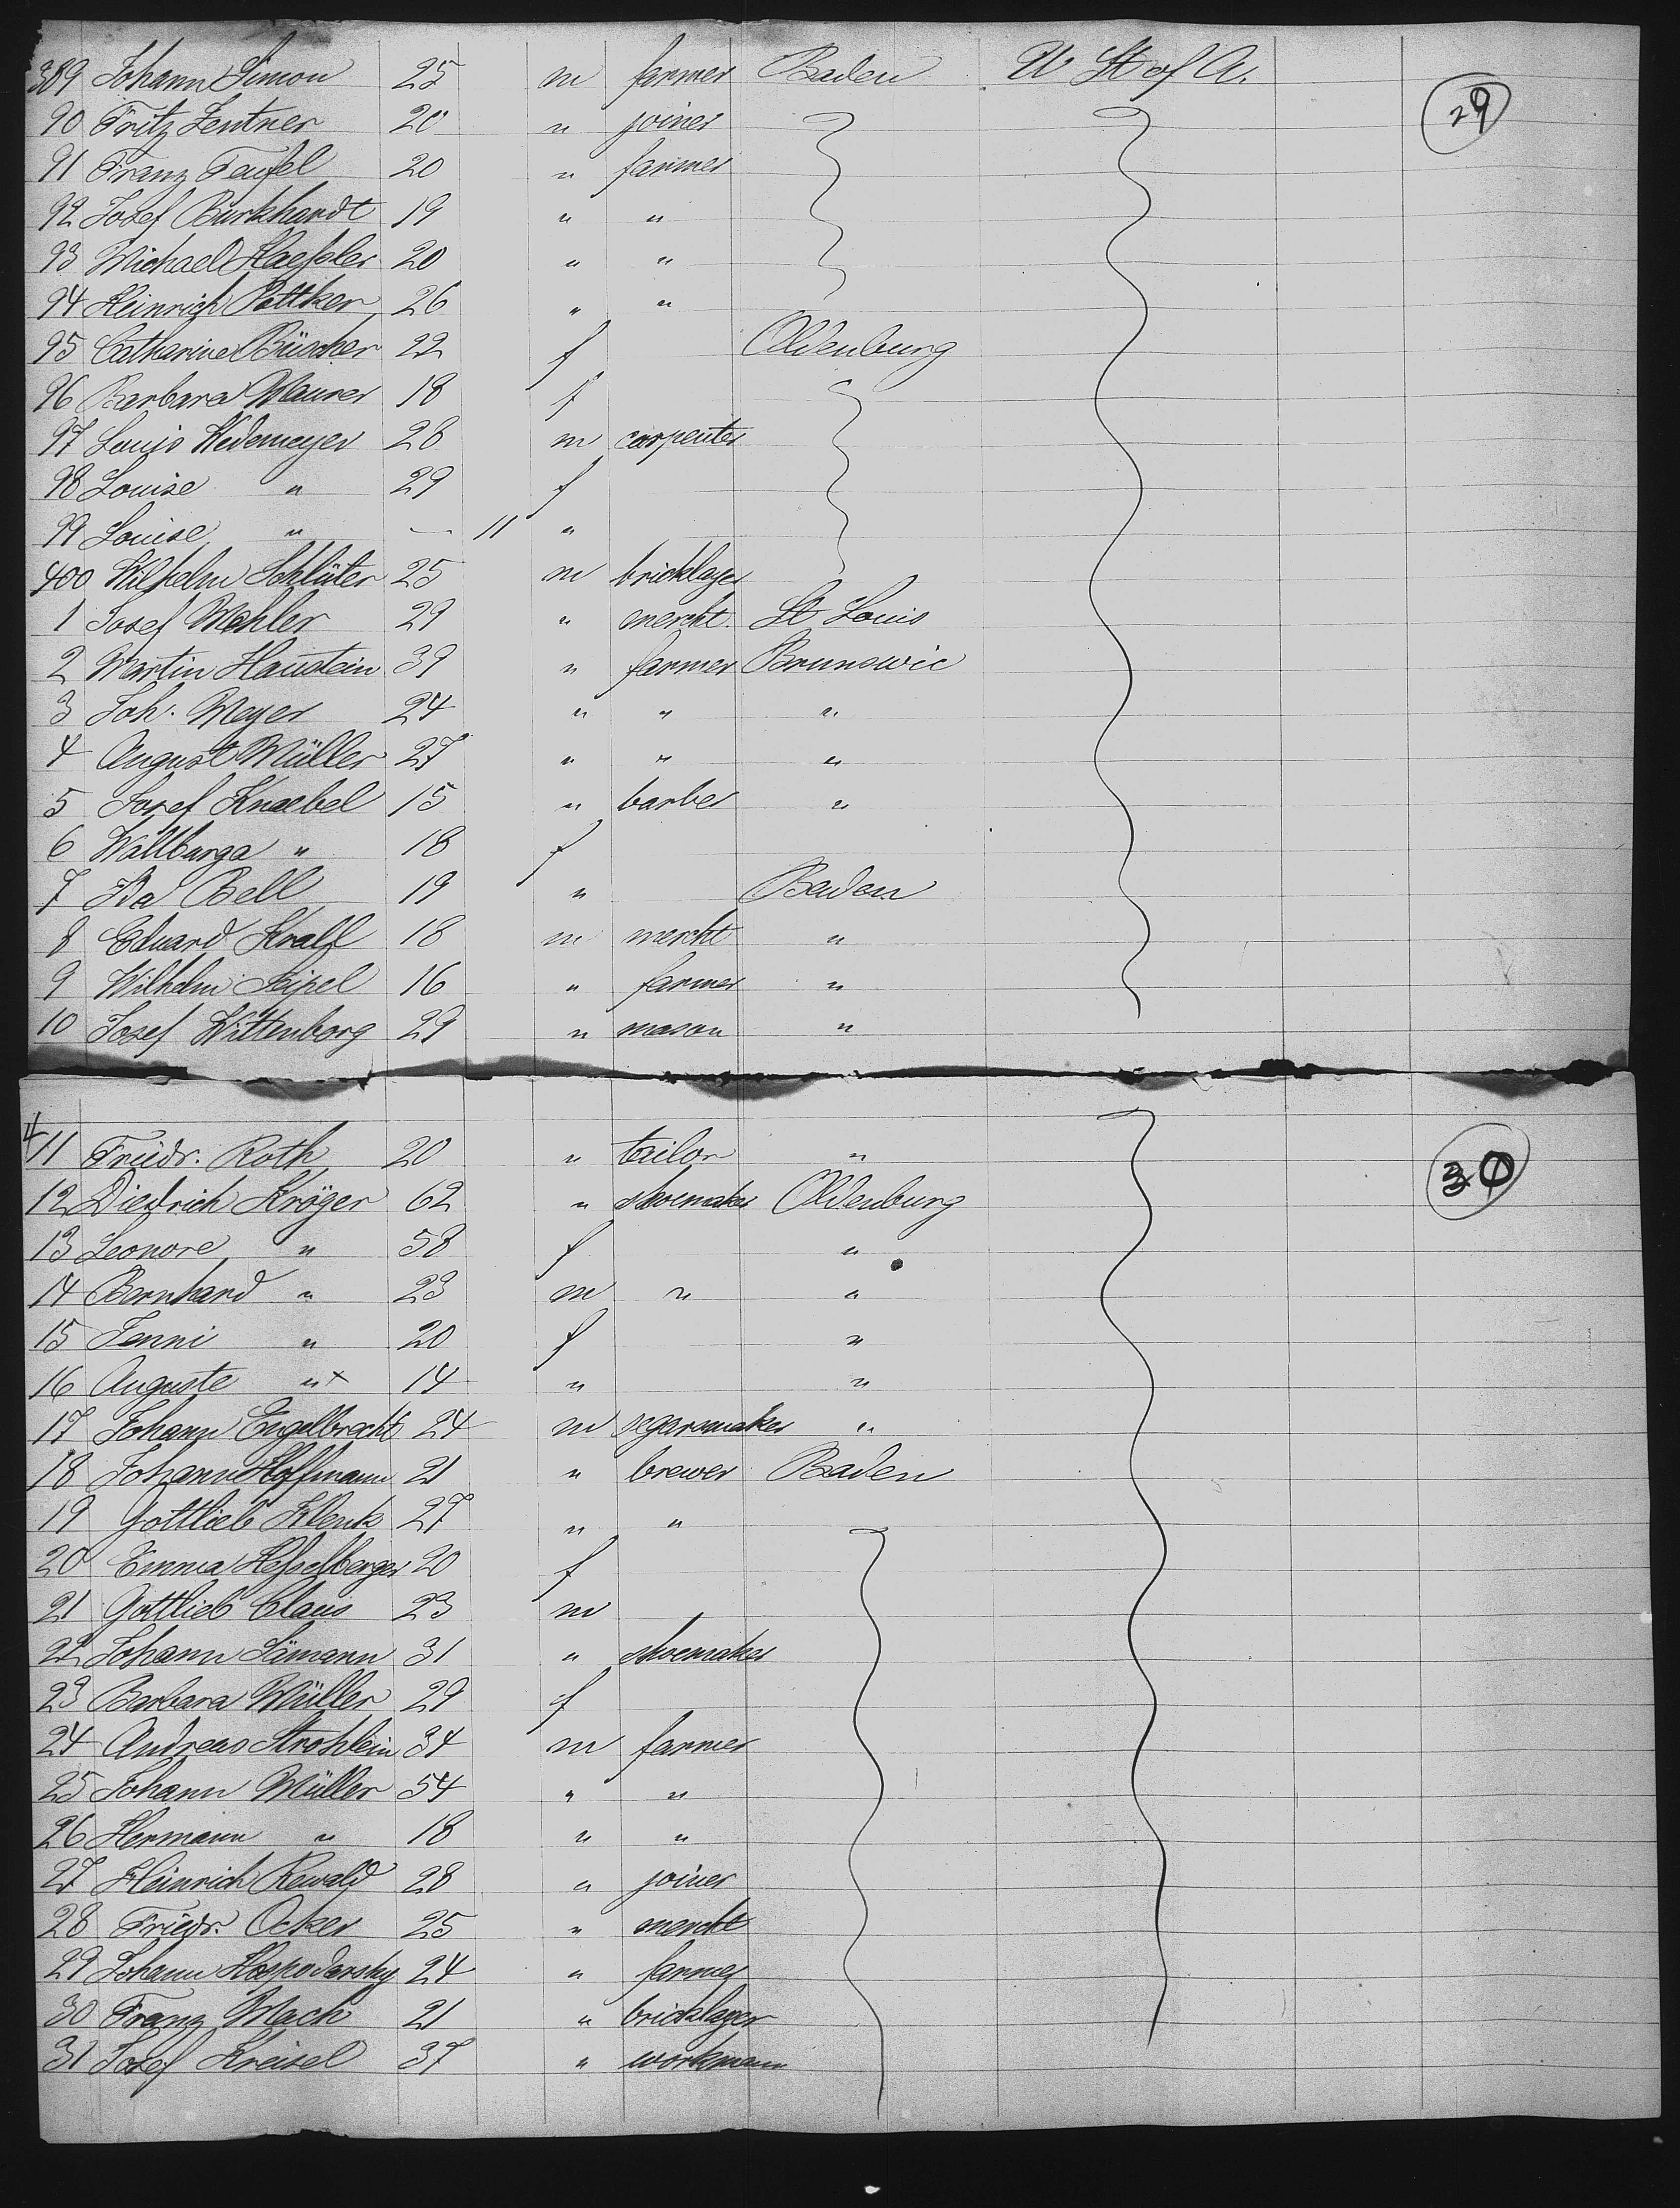 389 Johann Simon 25 m farmer Baden U St of A.
29
90 Fritz Zentner 20 " joiner
91 Franz Teufel 20 " farmer
92 Josef Burkhardt 19 " "
93 Michael Haeßler 20 " "
94 Heinrich Pottker 26 " "
95 Catharine Büscher 22 f Oldenburg
96 Barbara Maurer 18 f
97 Louis Wedemeyer 28 m carpenter
98 Louise " 29 f
99 Louise " — 11 "
400 Wilhelm Schlüter 25 m bricklayer
1 Josef Mahler 29 " mercht. St Louis
2 Martin Haustein 39 " farmer Brunswic
3 Joh. Meyer 24 " " "
4 August Müller 27 " " "
5 Josef Knaebel 15 " barber "
6 Wallburga " 18 f
7 Ida Bell 19 " Baden
8 Eduard Kralf 18 m mercht "
9 Wilhelm Seipel 16 " farmer "
10 Josef Wittenborg 29 " mason "
411 Friedr. Roth 20 " tailor "
30
12 Diedrich Kröger 62 " shoemaker Oldenburg
13 Leonore " 58 f "
14 Bernhard " 23 m " "
15 Jenni " 20 f "
16 Auguste " x 14 " "
17 Johann Engelbrecht 24 m segarsmaker "
18 Johann Hoffmann 21 " brewer Baden
19 Gottlieb Klenk 27 " "
20 Emma Heßelberger 20 f
21 Gottlieb Claus 23 m
22 Johann Sämann 31 " shoemaker
23 Barbara Müller 29 f
24 Andreas Strohlein 34 m farmer
25 Johann Müller 54 " "
26 Hermann " 18 " "
27 Heinrich Rewald 28 " joiner
28 Friedr. Ocker 25 " mercht
29 Johann Hospodarsky 24 " farmer
30 Franz Mach 21 " bricklayer
31 Josef Kreisel 37 " workmann